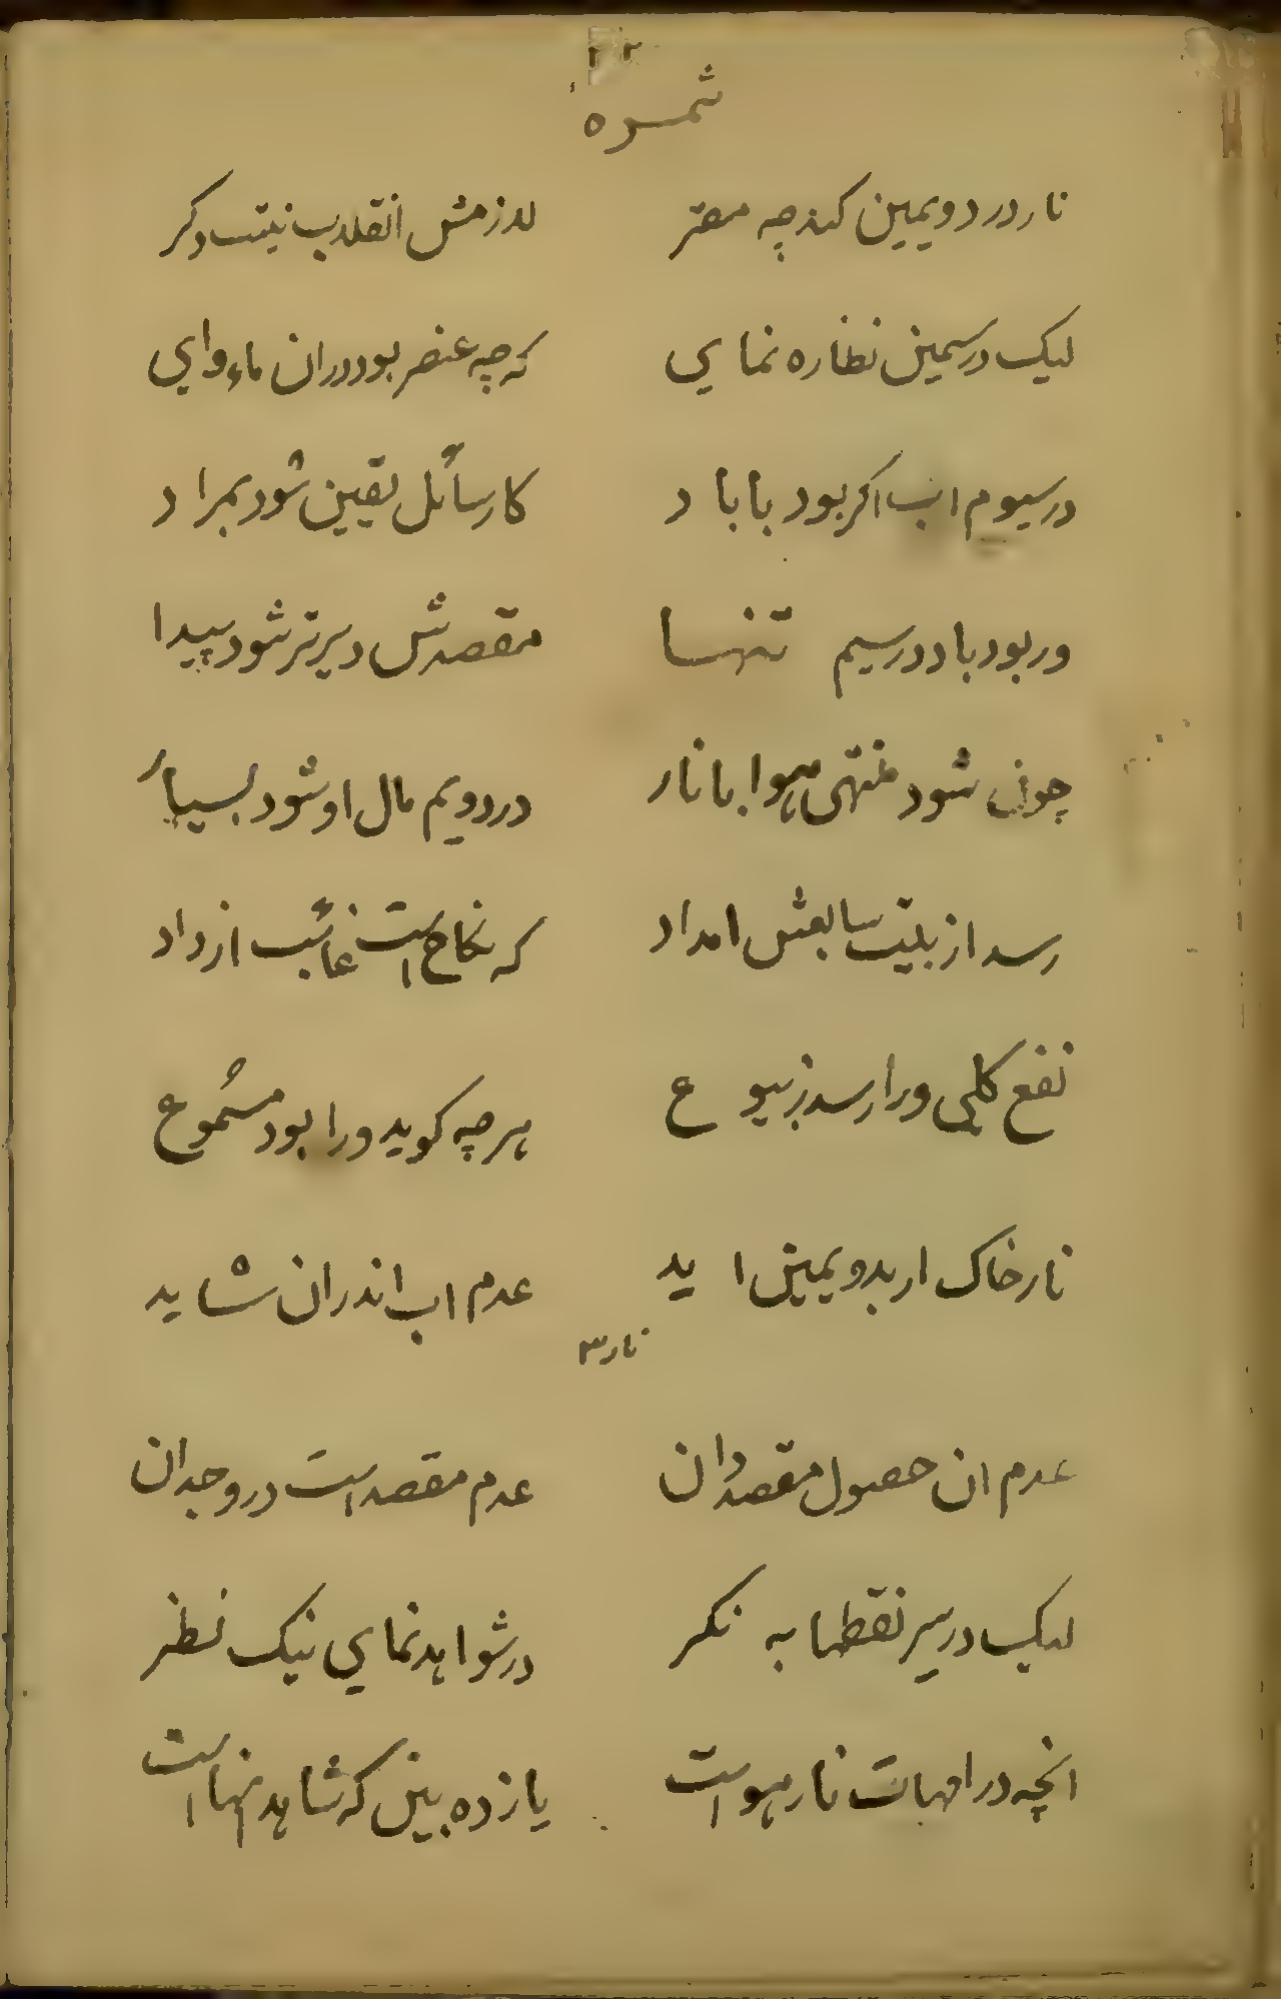 ۲۲
ثمره
نار در دویمین کند چه مقر لازمش انقلاب نیت دکر
لیک در سیمین نظاره نمای که چه عنصر بود دران ماء وای
در سیوم اب اکر بود با باد کار سائل یقین شود بمراد
ور بود باد در سیم تنها مقصدش دیرتر شود پیدا
چون شود منتهی هوا با نار در دویم مال او شود بسیار
رسد از بیت سابعش امداد که نکاح است غائب ازداد
نفع کلی ورا رسد زبیوع هرچه کوید ورا بود مسموع
نار خاک ار بدویمین اید عدم اب اندران شاید
نار۳
عدم ان حصول مقصد دان عدم مقصد است در وجدان
لیک در سیر نقطها به نکر در شواهد نمای نیک نظر
انچه در امهات نار هواست یازده بین که شاهد انهااست